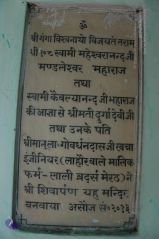 ॐ
श्री गंगा विश्वनाथो विजयतेतराम्
श्री १०८ स्वामी महेश्वरानन्द जी
मण्डलेश्वर महाराज
तथा
स्वामी कैवल्यानन्द जी महाराज
की आज्ञा से श्रीमती दुर्गा देवी जी
तथा उनके पति
श्रीमान् ला० गोवर्धनदास जी खन्ना
इंजीनियर (लाहौर वाले मालिक
फर्म-लाली ब्रदर्स मेरठ) ने
श्री शिवार्पण यह मन्दिर
बनवाया असोज सं०२०१३